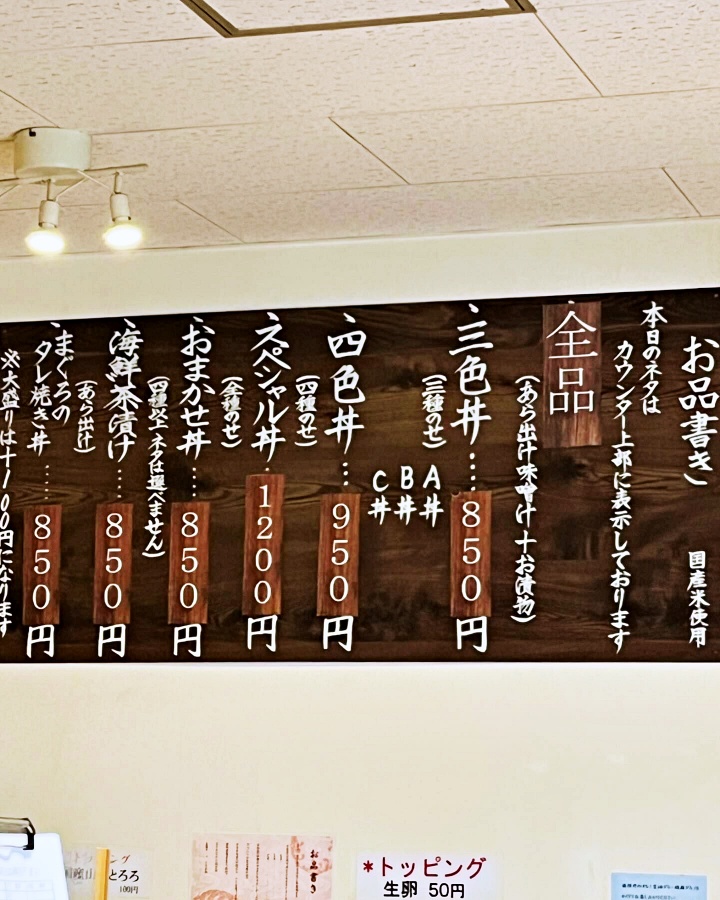 お品書き　国産米使用
本日のネタは
カウンター上部に表示しております
全品
(あら出汁味噌汁＋お漬物)
三色丼……850円
(三種のせ)
A丼
B丼
C丼
四色丼…950円
(四種のせ)
スペシャル丼…1200円
(全種のせ)
おまかせ丼……850円
(四種以上 ネタは選べません)
海鮮茶漬け……850円
(あら出汁)
まぐろの
タレ焼き丼……850円
※大盛りは＋100円になります
とろろ
100円
お品書き
*トッピング
生卵 50円